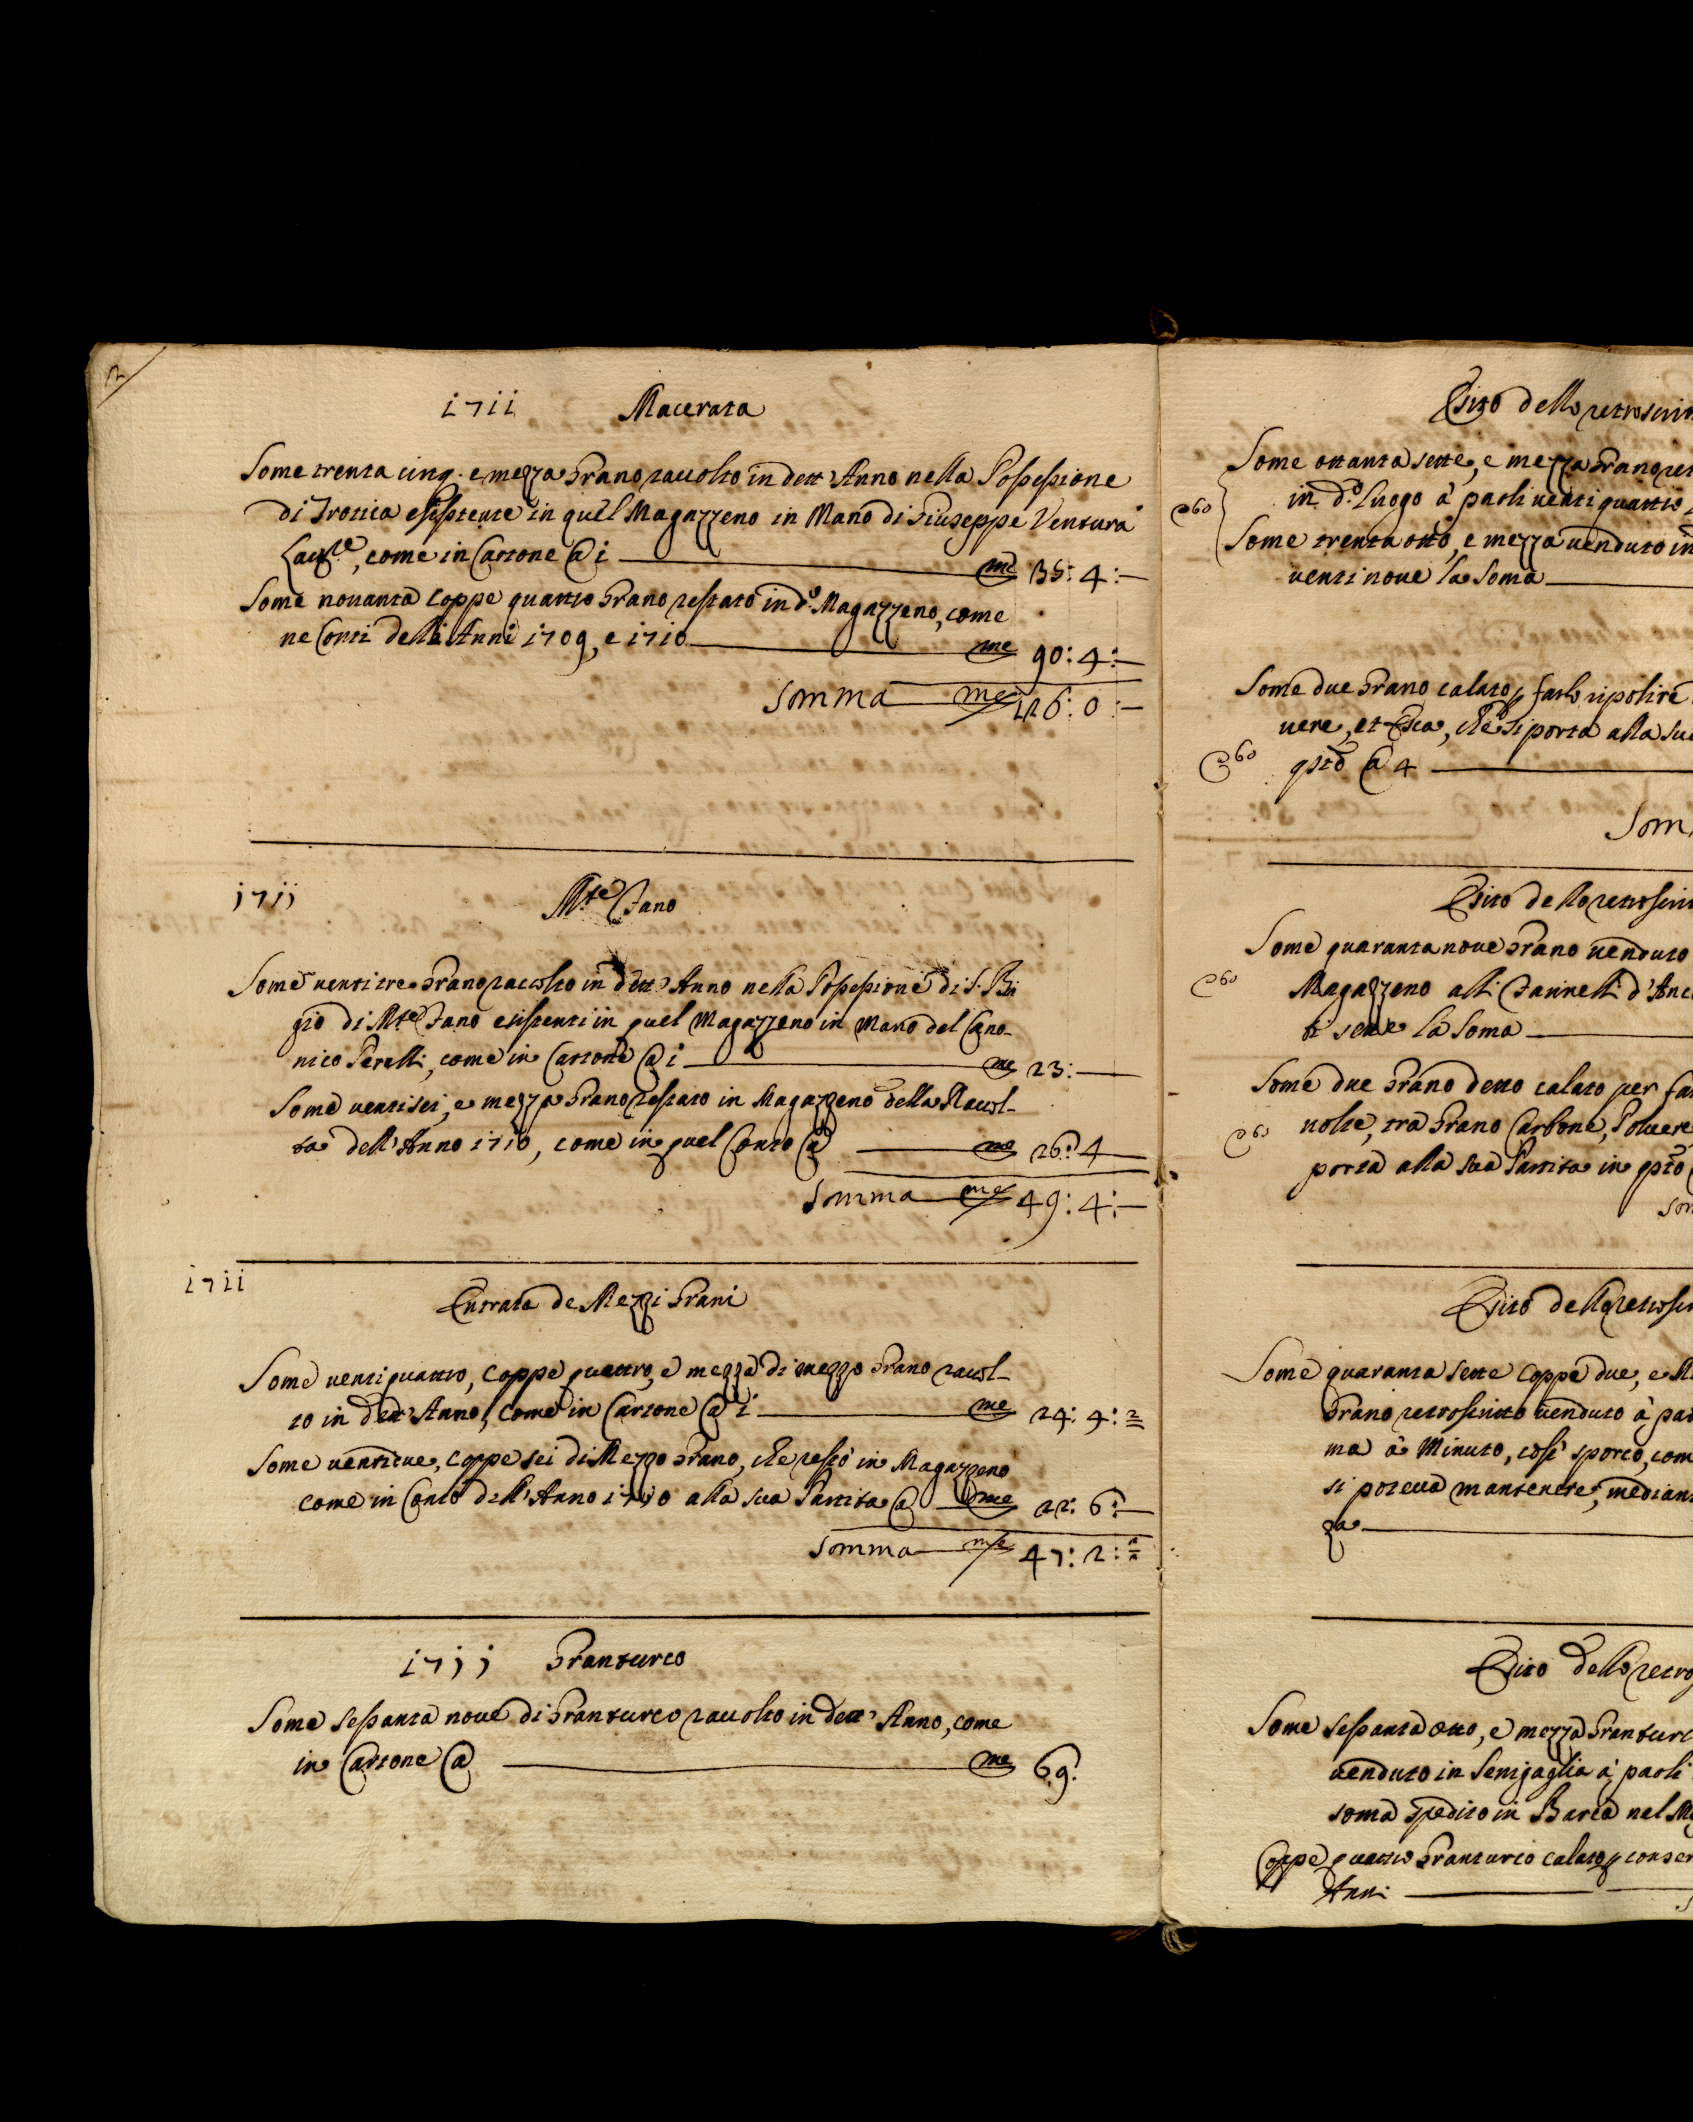 2
1711 Macerata
Some trenta cinq. e mezza Grano raccolto in dett' Anno nella Possessione
di Trotica esistente in quel Magazzeno in Mano di Giuseppe Ventura
come in Cartone @ 1 me 35: 4:—
Some novanta Coppe quattro Grano restato in d.º Magazzeno, come
ne Conti delli Anni 1709, e 1710 me 90: 4:—
Somma me 126: 0:—
1711 M.te Fano
Some ventitre Grano raccolto in dett' Anno nella Possessione di S. Bia
gio di M.te Fano esistenti in quel Magazzeno in Mano del Cano-
nico Perelli, come in Cartone @ 1 me 23:—
Some ventisei, e mezza Grano restato in Magazzeno della Raccol-
ta dell'Anno 1710, come in quel Conto @ me 26: 4
Somma me 49: 4:—
1711
Entrata de Mezzi Grani
Some ventiquattro, Coppe quattro, e mezza di mezzo Grano raccol-
to in dett' Anno, come in Cartone @ 1 me 24: 4: 2
Some ventidue, Coppe sei di Mezzo Grano, che restò in Magazzeno
come in Conto dell'Anno 1710 alla sua Partita @ me 22: 6:—
Somma me 47: 2:
1711 Granturco
Some sessanta nove di Granturco raccolto in dett' Anno, come
in Cartone @ me 69:
Esito dello retroscrit
Some ottanta sette, e mezza Grano ret
in d.º Luogo à paoli venti quattro
@60
Some trenta otto, e mezza venduto in
venti nove la Soma
Some due Grano calato p farlo ripolire
vere, et Esca, che si porta alla sua
@60 qsto @ 4
Som
Esito dello retroscrit
Some quaranta nove Grano venduto
@60 Magazzeno alli Fannelli d'Anc
ti sette la Soma
Some due Grano detto calato per far
@60 volte, tra Grano Carbone, Polvere
porta alla sua Partita in qsto
Som
Esito dello retroscr
Some quaranta sette Coppe due, e M
Grano retroscritto venduto à pao
ma à Minuto, così sporco, com
si poteva mantenere, median
za
Esito dello retro
Some sessanta otto, e mezza Granturc
venduto in Senigaglia à paoli
soma spedito in Barca nel M
Coppe quattro Granturco calato p conser
Anni
S